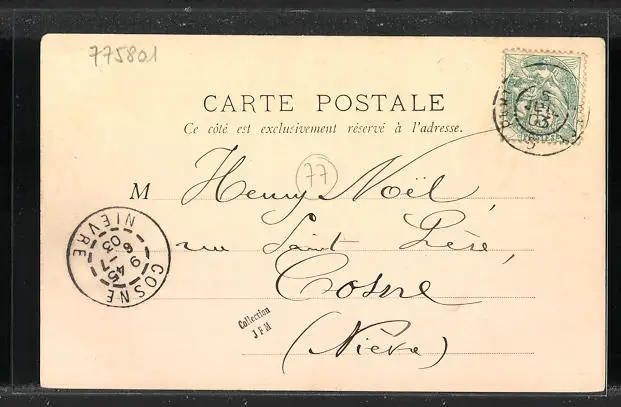 775801
CARTE POSTALE
Ce côté est exclusivement réservé à l'adresse.
77
M Henry Noël,
rue Saint Péré,
Cosne
(Nièvre)
COSNE
NIÈVRE
03
Collection
J F M